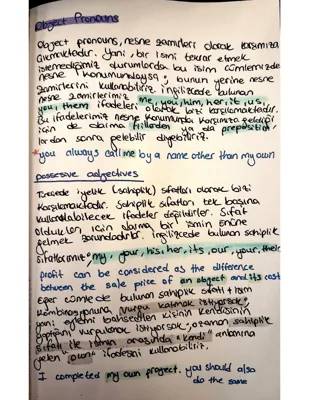 Object Pronouns
Object pronouns, nesne zamirleri olarak karşımıza
çıkmaktadır. Yani, bir ismi tekrar etmek
istemediğimiz durumlarda bu isim cümlemizde
nesne konumundaysa, bunun yerine nesne
zamirlerini kullanabiliriz. İngilizcede bulunan
nesne zamirlerimiz me, you, him, her, it, us,
you, them ifadeleri olarak bizi karşılamaktadır.
Bu ifadelerimiz nesne konumunda karşımıza geldiği
için de daima fiillerden ya da preposition
lardan sonra gelebilir diyebiliriz.
you always call me by a name other than my own
possesive adjectives
Türkçede iyelik (sahiplik) sıfatları olarak bizi
karşılamaktadır. Sahiplik sıfatları tek başına
kullanılabilecek ifadeler değildirler. Sıfat
oldukları için daima bir ismin önüne
gelmek zorundadırlar. İngilizcede bulunan sahiplik
sıfatlarımız; my, your, his, her, its, our, your, their
profit can be considered as the difference
between the sale price of an object and its cost
Eğer cümlede bulunan sahiplik sıfatı + isim
kombinasyonuna vurgu katmak istiyorsak;
yani eylemi bahsedilen kişinin kendisinin
yaptığını vurgulamak istiyorsak; o zaman sahiplik
sıfatı ile ismin arasında "kendi" anlamına
gelen "own" ifadesini kullanabiliriz.
I completed my own project. you should also
do the same